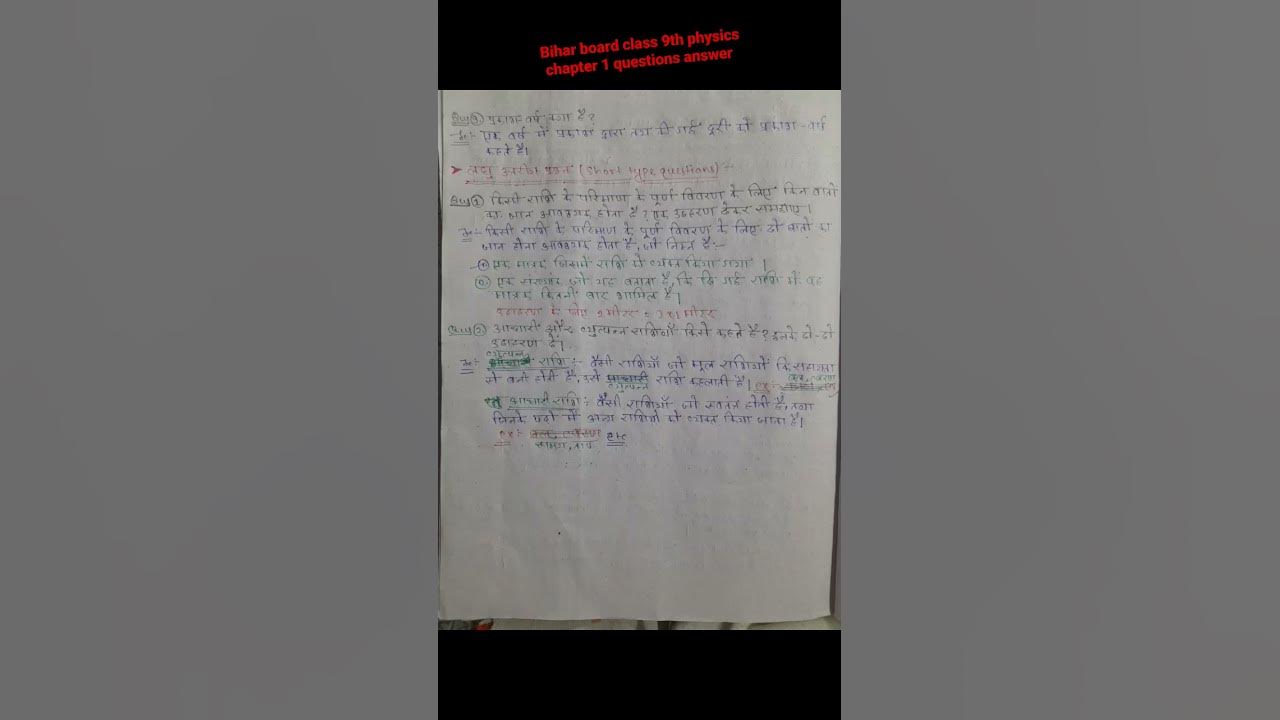 Bihar board class 9th physics
chapter 1 questions answer
प्रकाश वर्ष क्या है?
एक वर्ष में प्रकाश द्वारा तय की गई दूरी को प्रकाश-वर्ष
कहते हैं।
लघु उत्तरीय प्रश्न (Short type questions)
किसी राशि के परिमाण के पूर्ण विवरण के लिए किन बातों
का ज्ञान आवश्यक होता है? एक उदाहरण देकर समझाए।
किसी राशि के परिमाण के पूर्ण विवरण के लिए दो बातों का
ज्ञान होना आवश्यक होता है, जो निम्न है:-
एक मात्रक जिसमें राशि में व्यक्त किया गया।
एक संख्यांक जो यह बताता है, कि दि गई राशि में वह
मात्रक कितनी बार शामिल है।
उदाहरण के लिए 2 मीटर = 2x1 मीटर
आधारी और व्युत्पन्न राशियाँ किसे कहते हैं? इनके दो-दो
उदाहरण दें।
व्युत्पन्न
राशि:- वैसी राशियाँ जो मूल राशियों कि सहायता
से बनी होती है, उसे व्युत्पन्न राशि कहलाती है। ex:-
आधारी राशि:- वैसी राशियाँ जो स्वतंत्र होती है, तथा
जिनके पदों में अन्य राशियों को व्यक्त किया जाता है।
ex:- etc